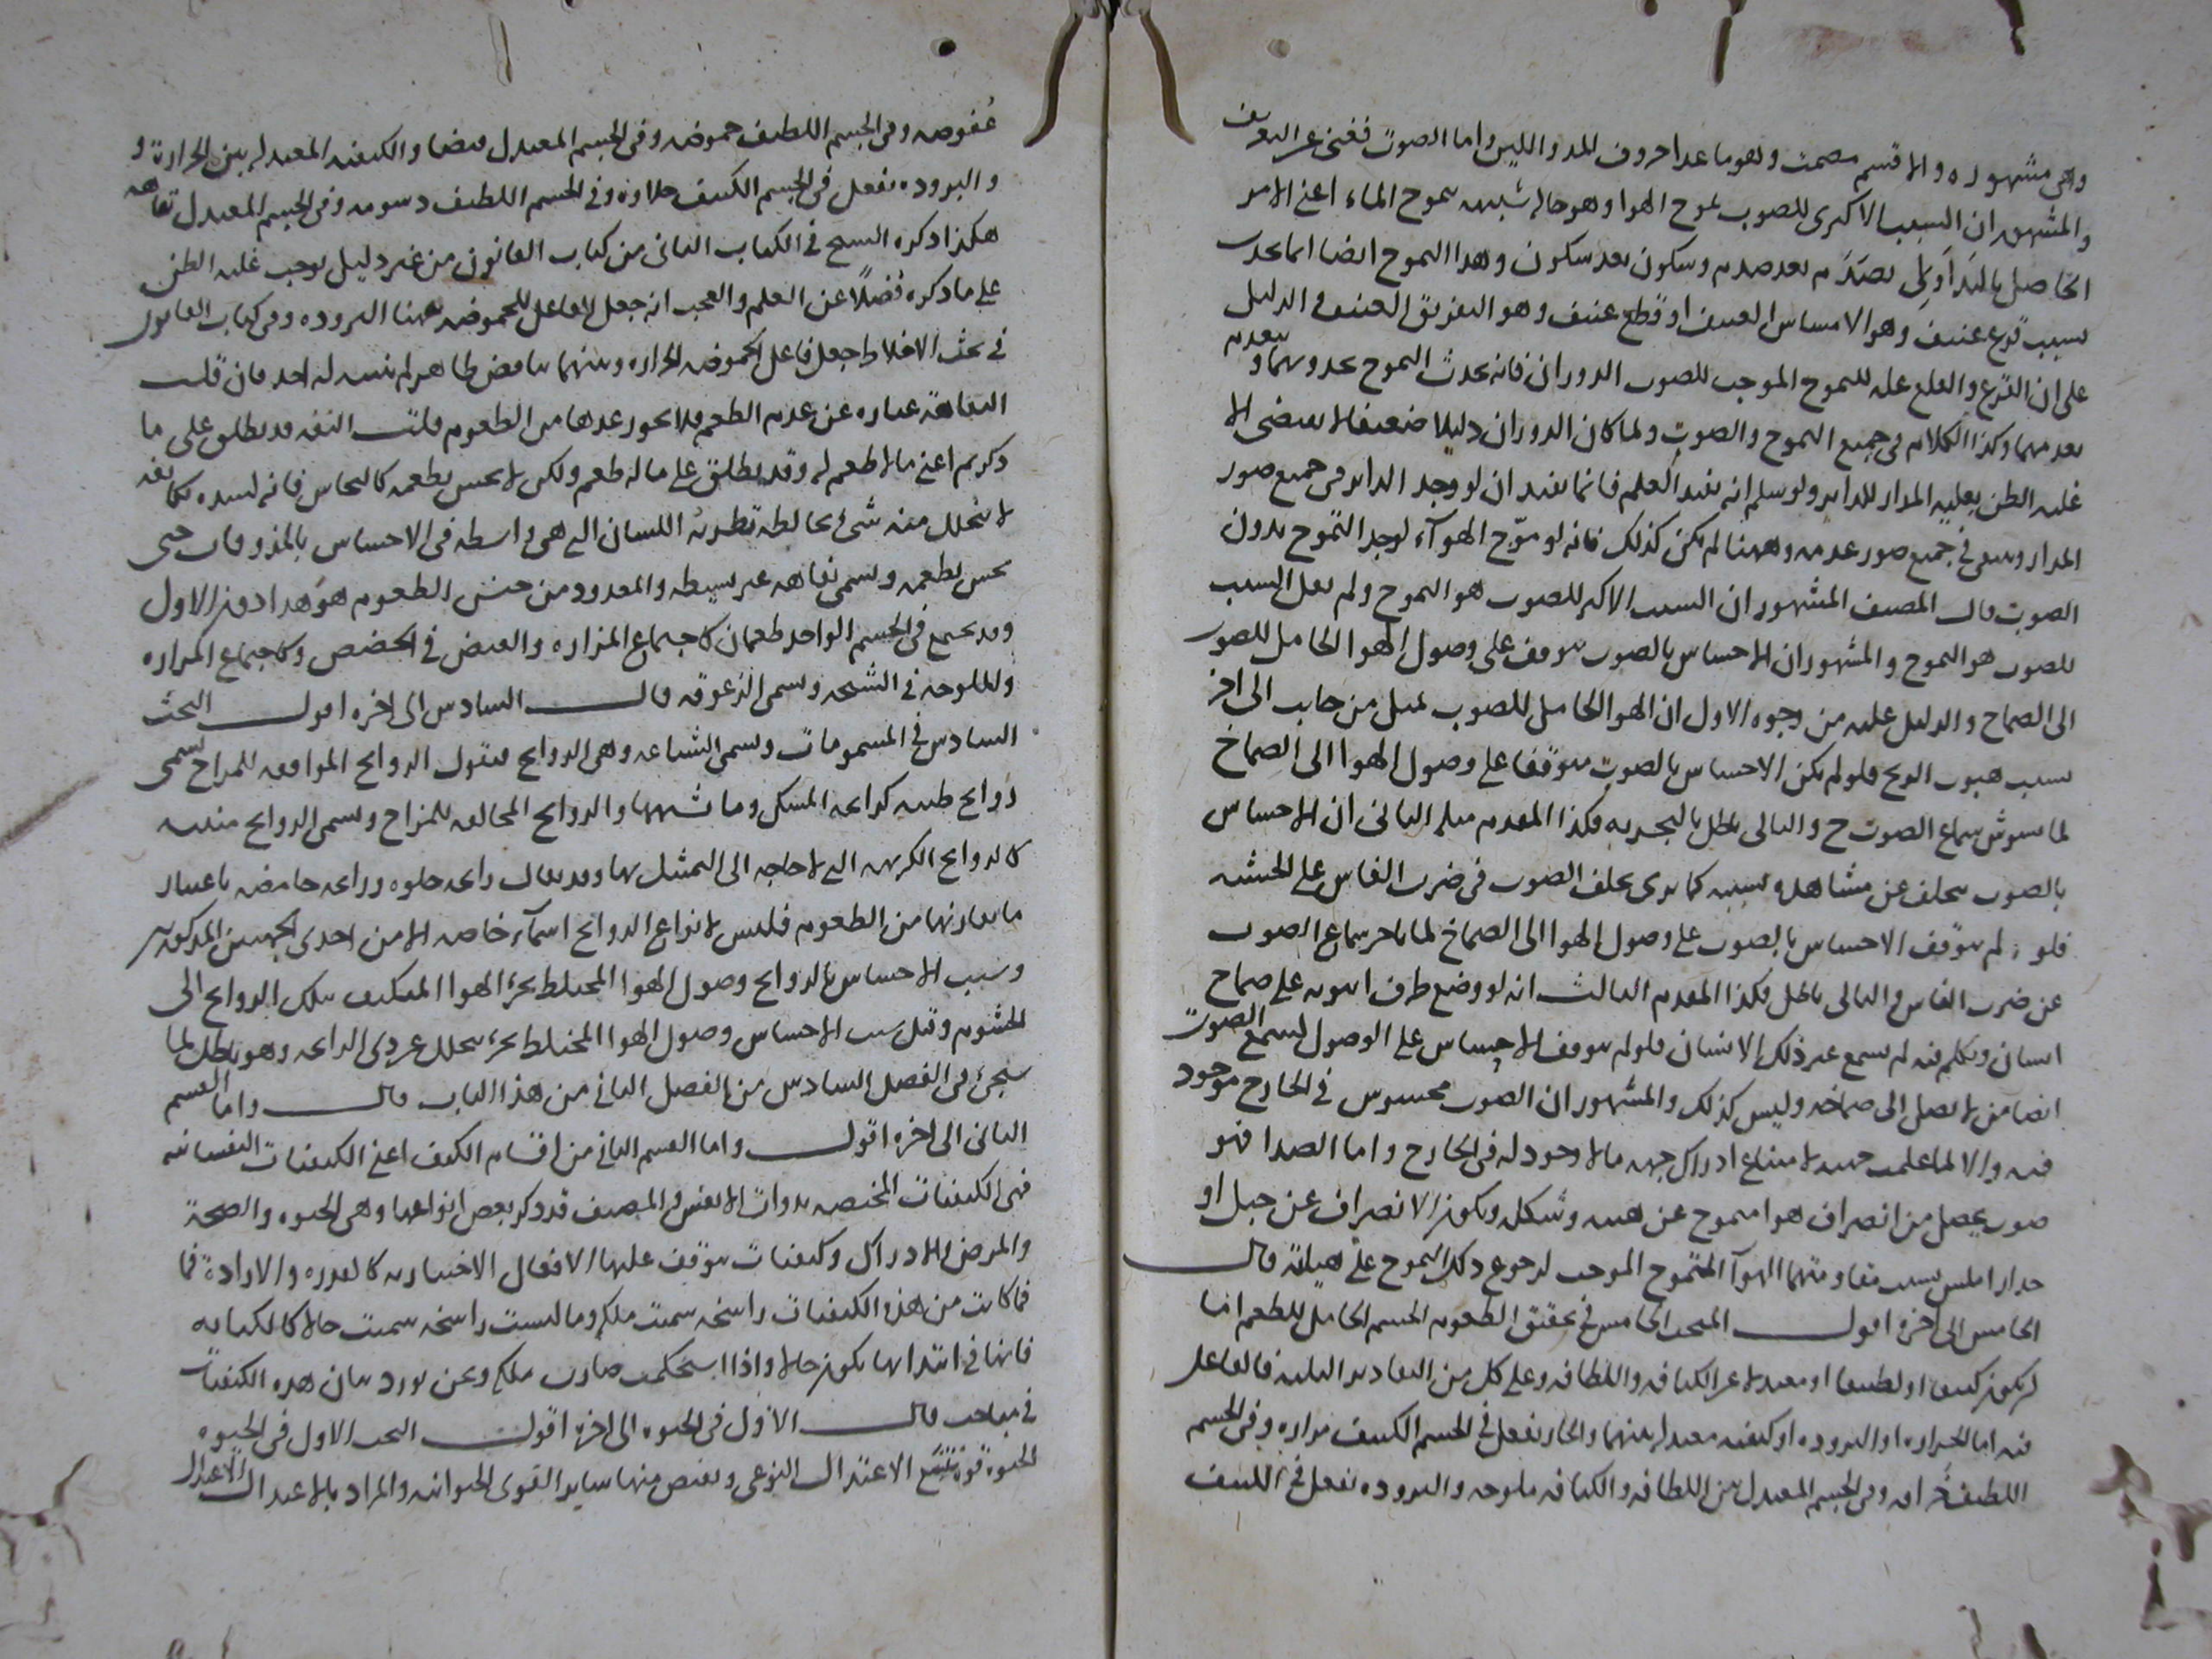 وهي مشهوره والا قسم مصمت وهو ما عدا حروف المد واللين واما الصوت فغني عن التعريف
والمشهور ان السبب الاكبرى للصوت تموج الهوا وهو حاله شبيهه بتموج الماء اعنى الامر
الحاصل بالتداول بصدم بعد صدم وسكون بعد سكون وهذا التموج ايضا انما يحدث
بسبب قرع عنيف وهو الامساس العنيف او قطع عنيف وهو التفريق العنيف والدليل
على ان القرع والقلع علة للتموج الموجب للصوت الدوران فانه يحدث التموج بحدوثهما ويعدم
بعدمهما وكذا الكلام في جميع التموج والصوت ولما كان الدوران دليلا ضعيفا لا يقتضى الا
غلبه الظن بعلية المدار للداير ولو سلم انه يفيد العلم فانما يفيد ان لو وجد الداير في جميع صور
المدار وينتفى في جميع صور عدمه وههنا لم يكن كذلك فانه لو موّج الهوآء لوجد التموج بدون
الصوت قال المصنف المشهور ان السبب الاكبر للصوت هو التموج ولم يقل السبب
للصوت هو التموج والمشهور ان الاحساس بالصوت يتوقف على وصول الهوا الحامل للصوت
الى الصماخ والدليل عليه من وجوه الاول ان الهوا الحامل للصوت يميل من جانب الى اخر
بسبب هبوب الريح فلو لم يكن الاحساس بالصوت متوقفا على وصول الهوا الى الصماخ
لما تشوش سماع الصوت ح والتالى باطل بالتجربه فكذا المقدم مثله الثانى ان الاحساس
بالصوت يتخلف عن مشاهدة سببه كما يرى تخلف الصوت في ضرب الفاس على الخشبه
فلو لم يتوقف الاحساس بالصوت على وصول الهوا الى الصماخ لما تاخر سماع الصوت
عن ضرب الفاس والتالى باطل فكذا المقدم الثالث انه لو وضع طرف انبوبه على صماخ
انسان وتكلم فيه لم يسمع غير ذلك الانسان فلو لم يتوقف الاحساس على الوصول لسمع الصوت
ايضا من لا يصل الى صماخه وليس كذلك والمشهور ان الصوت محسوس في الخارج موجود
فيه والا لما علمت جهته لامتناع ادراك جهه ما لا وجود له في الخارج واما الصدا فهو
صوت يحصل من انصراف هوا متموج عن هيئه وشكله ويكون الانصراف عن جبل او
جدار املس بسبب مقاومتهما الهوآ المتموج الموجب لرجوع ذلك التموج على هيئاته قال
الخامس الى اخره اقول المبحث الخامس في تحقيق الطعوم الجسم الحامل للطعم اما
ان يكون كثيفا او لطيفا او معتدلا عن الكثافه واللطافه وعلى كل من التقادير الثلثه فالفاعل
فيه اما الحراره او البروده او كيفيه معتدله بينهما والحار يفعل في الجسم الكثيف مراره وفي الجسم
اللطيف حرافه وفي الجسم المعتدل بين اللطافه والكثافه ملوحه والبروده تفعل في الكثيف
عفوصه وفي الجسم اللطيف حموضه وفي الجسم المعتدل قبضا والكيفيه المعتدله بين الحرارة و
والبروده تفعل في الجسم الكثيف حلاوة وفي الجسم اللطيف دسومه وفي الجسم المعتدل تفاهه
هكذا ذكره الشيخ في الكتاب الثانى من كتاب القانون من غير دليل يوجب غلبه الظن
على ما ذكره فضلًا عن العلم والعجب انه جعل الفاعل للحموضه ههنا البروده وفي كتاب القانون
في بحث الاخلاط جعل فاعل الحموضه الحراره وبينهما تناقض ظاهر لم يتنبه له احد فان قلت
التفاهة عباره عن عدم الطعم فلا يجوز عدها من الطعوم قلت التفه قد يطلق على ما
ذكرتم اعنى ما لا طعم له وقد يطلق على ما له طعم ولكن لا يحس بطعمه كالنحاس فانه لشده تكاثفه
لا يتحلل منه شى يخالط رطوبه اللسان التى هي واسطه في الاحساس بالمذوقات حتى
يحس بطعمه ويسمى تفاهه غير بسيطه والمعدود من جنس الطعوم هو هذا دون الاول
وقد يجتمع في الجسم الواحد طعمان كاجتماع المراره والقبض في الحضض وكاجتماع المراره
والملوحه في الشيحه ويسمى الزعوقه قال السادس الى اخره اقول البحث
السادس في المشمومات ويسمى الشاعه وهي الروايح فنقول الروايح الموافقه للمزاح تسمى
روايح طيبه كرائحه المسك وما شبهها والروايح المخالفه للمزاح تسمى الروايح منتنه
كالروايح الكريهه التى لا حاجه الى التمثيل بها وقد يقال رائحه حلوه ورائحه حامضه باعتبار
ما يقارنها من الطعوم فليس لانواع الروايح اسمآء خاصه الا من احدى الجهتين المذكورتين
وسبب الاحساس بالروايح وصول الهوا المختلط بجزء الهوا المتكيف بتلك الروايح الى
الخيشوم وقيل سبب الاحساس وصول الهوا المختلط بجزء يتحلل عن ذى الرائحه وهو باطل لما
سيجئ في الفصل السادس من الفصل الثانى من هذا الباب قال واما القسم
الثانى الى اخره اقول واما القسم الثانى من اقسام الكيف اعنى الكيفيات النفسانيه
فهى الكيفيات المختصه بذوات الانفس والمصنف قد ذكر بعض انواعها وهى الحيوه والصحة
والمرض والادراك وكيفيات يتوقف عليها الافعال الاختياريه كالقدره والارادة فما
فما كانت من هذه الكيفيات راسخه سميت ملكه وما ليست راسخه سميت حالا كالكتابه
فانها في ابتدائها يكون حالا واذا استحكمت صارت ملكه ونحن نورد بيان هذه الكيفيات
في مباحث قال الاول في الحيوه الى اخره اقول البحث الاول في الحيوه
الحيوة قوة تتبع الاعتدال النوعى وتفيض منها ساير القوى الحيوانيه والمراد بالاعتدال الاعتدال